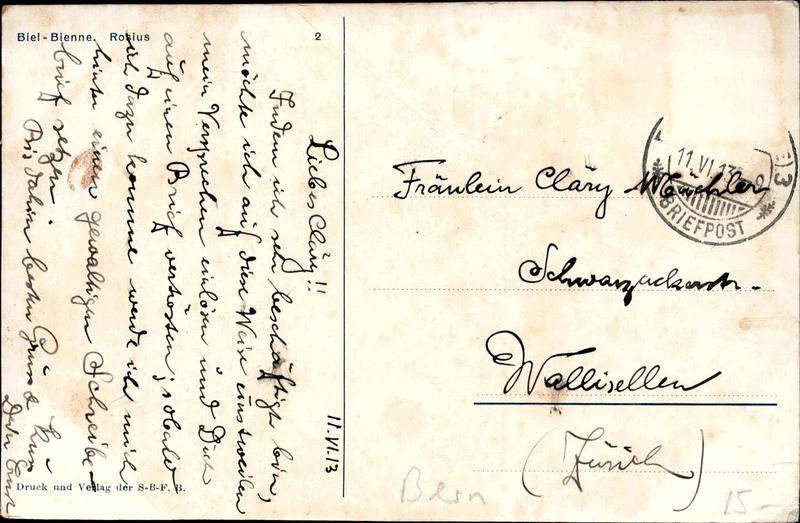 Biel-Bienne. Rosius 2
11.VI.13
Liebes Cläry!!
Indem ich sehr beschäftigt bin,
möchte ich auf diese Weise einstweilen
mein Versprechen einlösen und Dich
auf einen Brief vertrösten; sobald
ich dazu komme werde ich mich
hinter einen gewaltigen Schreibe-
brief setzen
Bis dahin besten Grüsse &
Dein Ernst
Druck und Verlag der S-B-F. B.
Fräulein Cläry
Schwarzackerstr.
Wallisellen
(Zürich)
11.VI.13
BRIEFPOST
3
Bern
15-